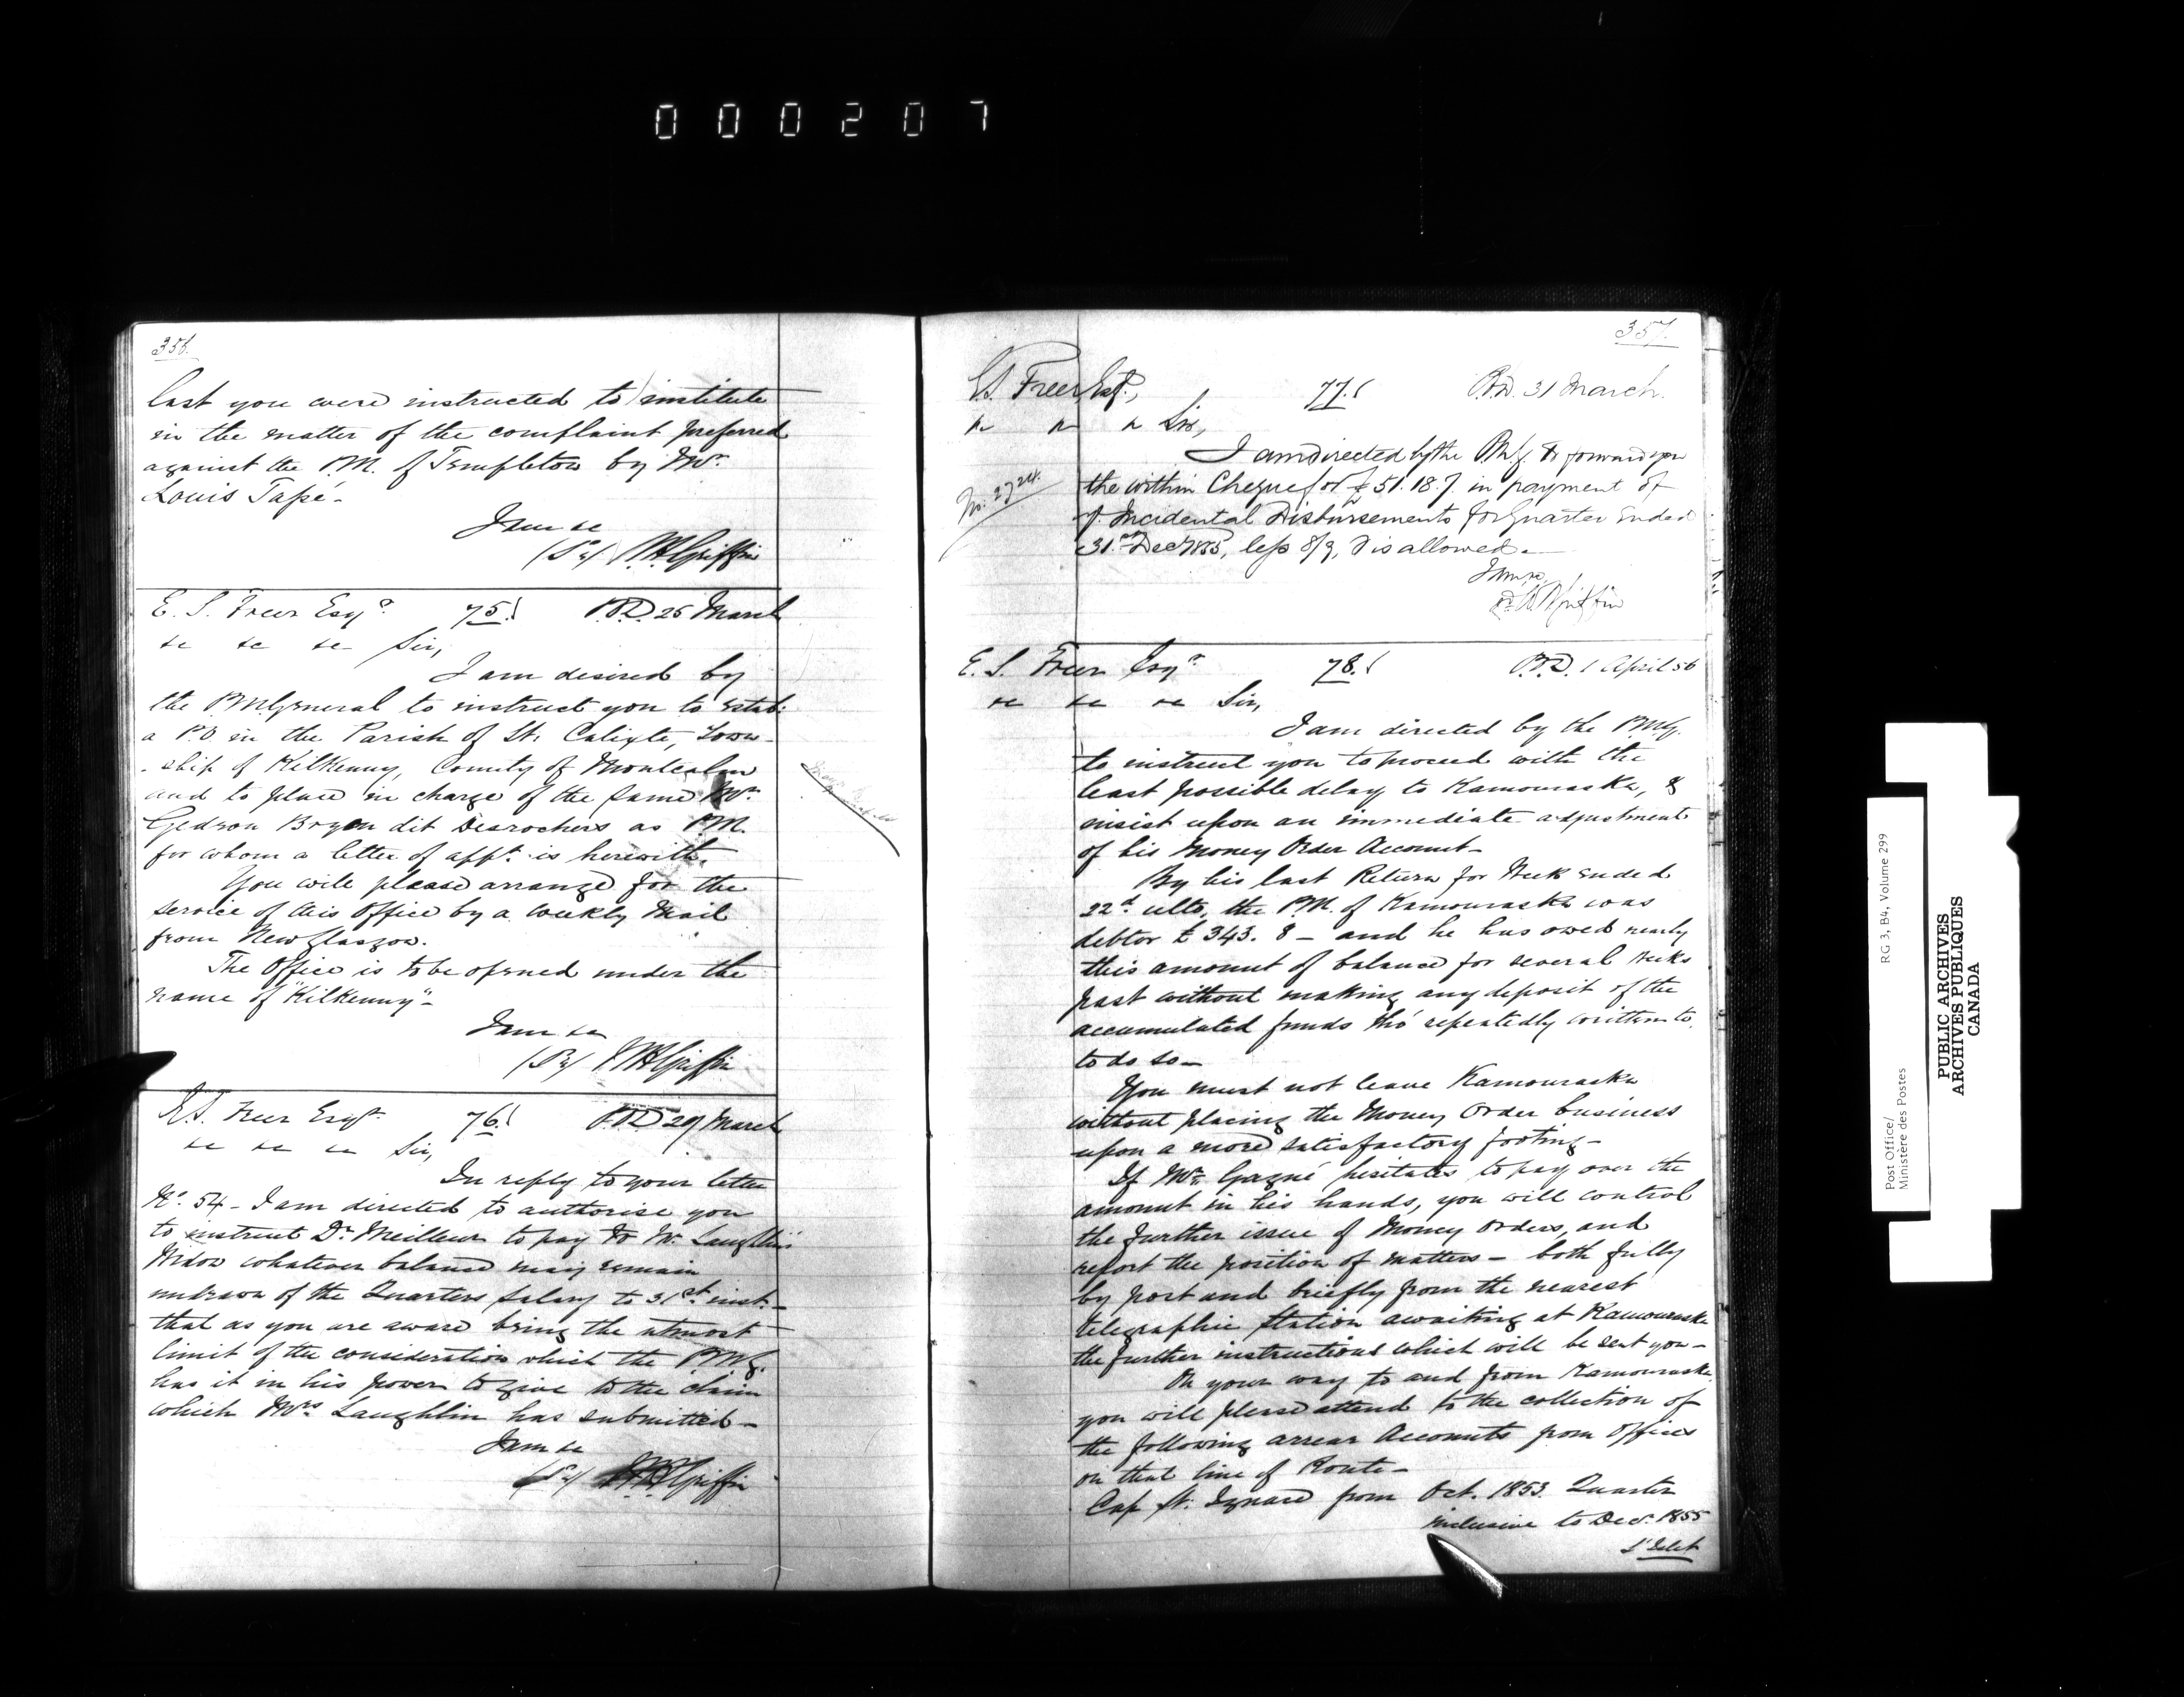 000207
356.
last you were instructed to institute
in the matter of the complaint preferred
against the P.M. of Templeton by Mr.
Louis Tapé-
I am &c
(Sd) W.H. Griffin
E. S. Freer Esqr. 75. P.O.D. 26 March
&c &c &c Sir,
I am desired by
the P.M. General to instruct you to estab:
a P.O in the Parish of St. Calixte, Town-
-ship of Kilkenny, County of Montcalm
and to place in charge of the same Mr.
Gedeon Boyer dit Desrochers as P.M.
for whom a letter of appt. is herewith.
You will please arrange for the
service of this Office by a weekly Mail
from New Glasgow.
The Office is to be opened under the
name of "Kilkenny"-
I am &c
(Sd) W H Griffin
E.S. Freer Esqr. 76. P.O.D 29 March
&c &c &c Sir,
In reply to your letter
No. 54 - I am directed to authorise you
to instruct Dr. Meilleur to pay to Mr. Laughlin's
Widow whatever balance may remain
undrawn of the Quarters Salary to 31st. inst.-
that as you are aware being the utmost
limit of the consideration which the P.M.G.
has it in his power to give to the claim
which Mrs Laughlin has submitted-
I am &c
(Sd) W.H. Griffin
357.
E.S. Freer, Esqr., 77. P.O.D. 31 March.
" " " Sir,
I am directed by the P.M.G. to forward you
No. 2724. the within Cheque for £51.18.7. in payment of
of Incidental Disbursements for Quarter Ended
31st Decr 1855, less 8/9, disallowed.-
I am &c,
W H Griffin
E. S. Freer Esqr. 78. P.O.D. 1 April 56
&c &c &c Sir,
I am directed by the P.M.G.
to instruct you to proceed with the
least possible delay to Kamouraska, &
insist upon an immediate adjustment
of his Money Order Account-
By his last Return for Week ended
22d. ulto, the P.M. of Kamouraska was
debtor £343. 8 - and he has owed nearly
this amount of balance for several weeks
past without making any deposit of the
accumulated funds tho' repeatedly written to,
to do so-
You must not leave Kamouraska
without placing the Money Order business
upon a more satisfactory footing-
If Mr. Gagné hesitates to pay over the
amount in his hands, you will control
the further issue of Money Orders, and
report the position of matters - both fully
by post and briefly from the nearest
telegraphic station awaiting at Kamouraska
the further instructions which will be sent you-
On your way to and from Kamouraska,
you will please attend to the collection of
the following arrear Accounts from Offices
on that line of Route-
Cap St. Ignace from Oct. 1853 Quarter
inclusive to Decr. 1855
L'Islet
Post Office/ RG 3, B4, Volume 299
Ministère des Postes
PUBLIC ARCHIVES
ARCHIVES PUBLIQUES
CANADA